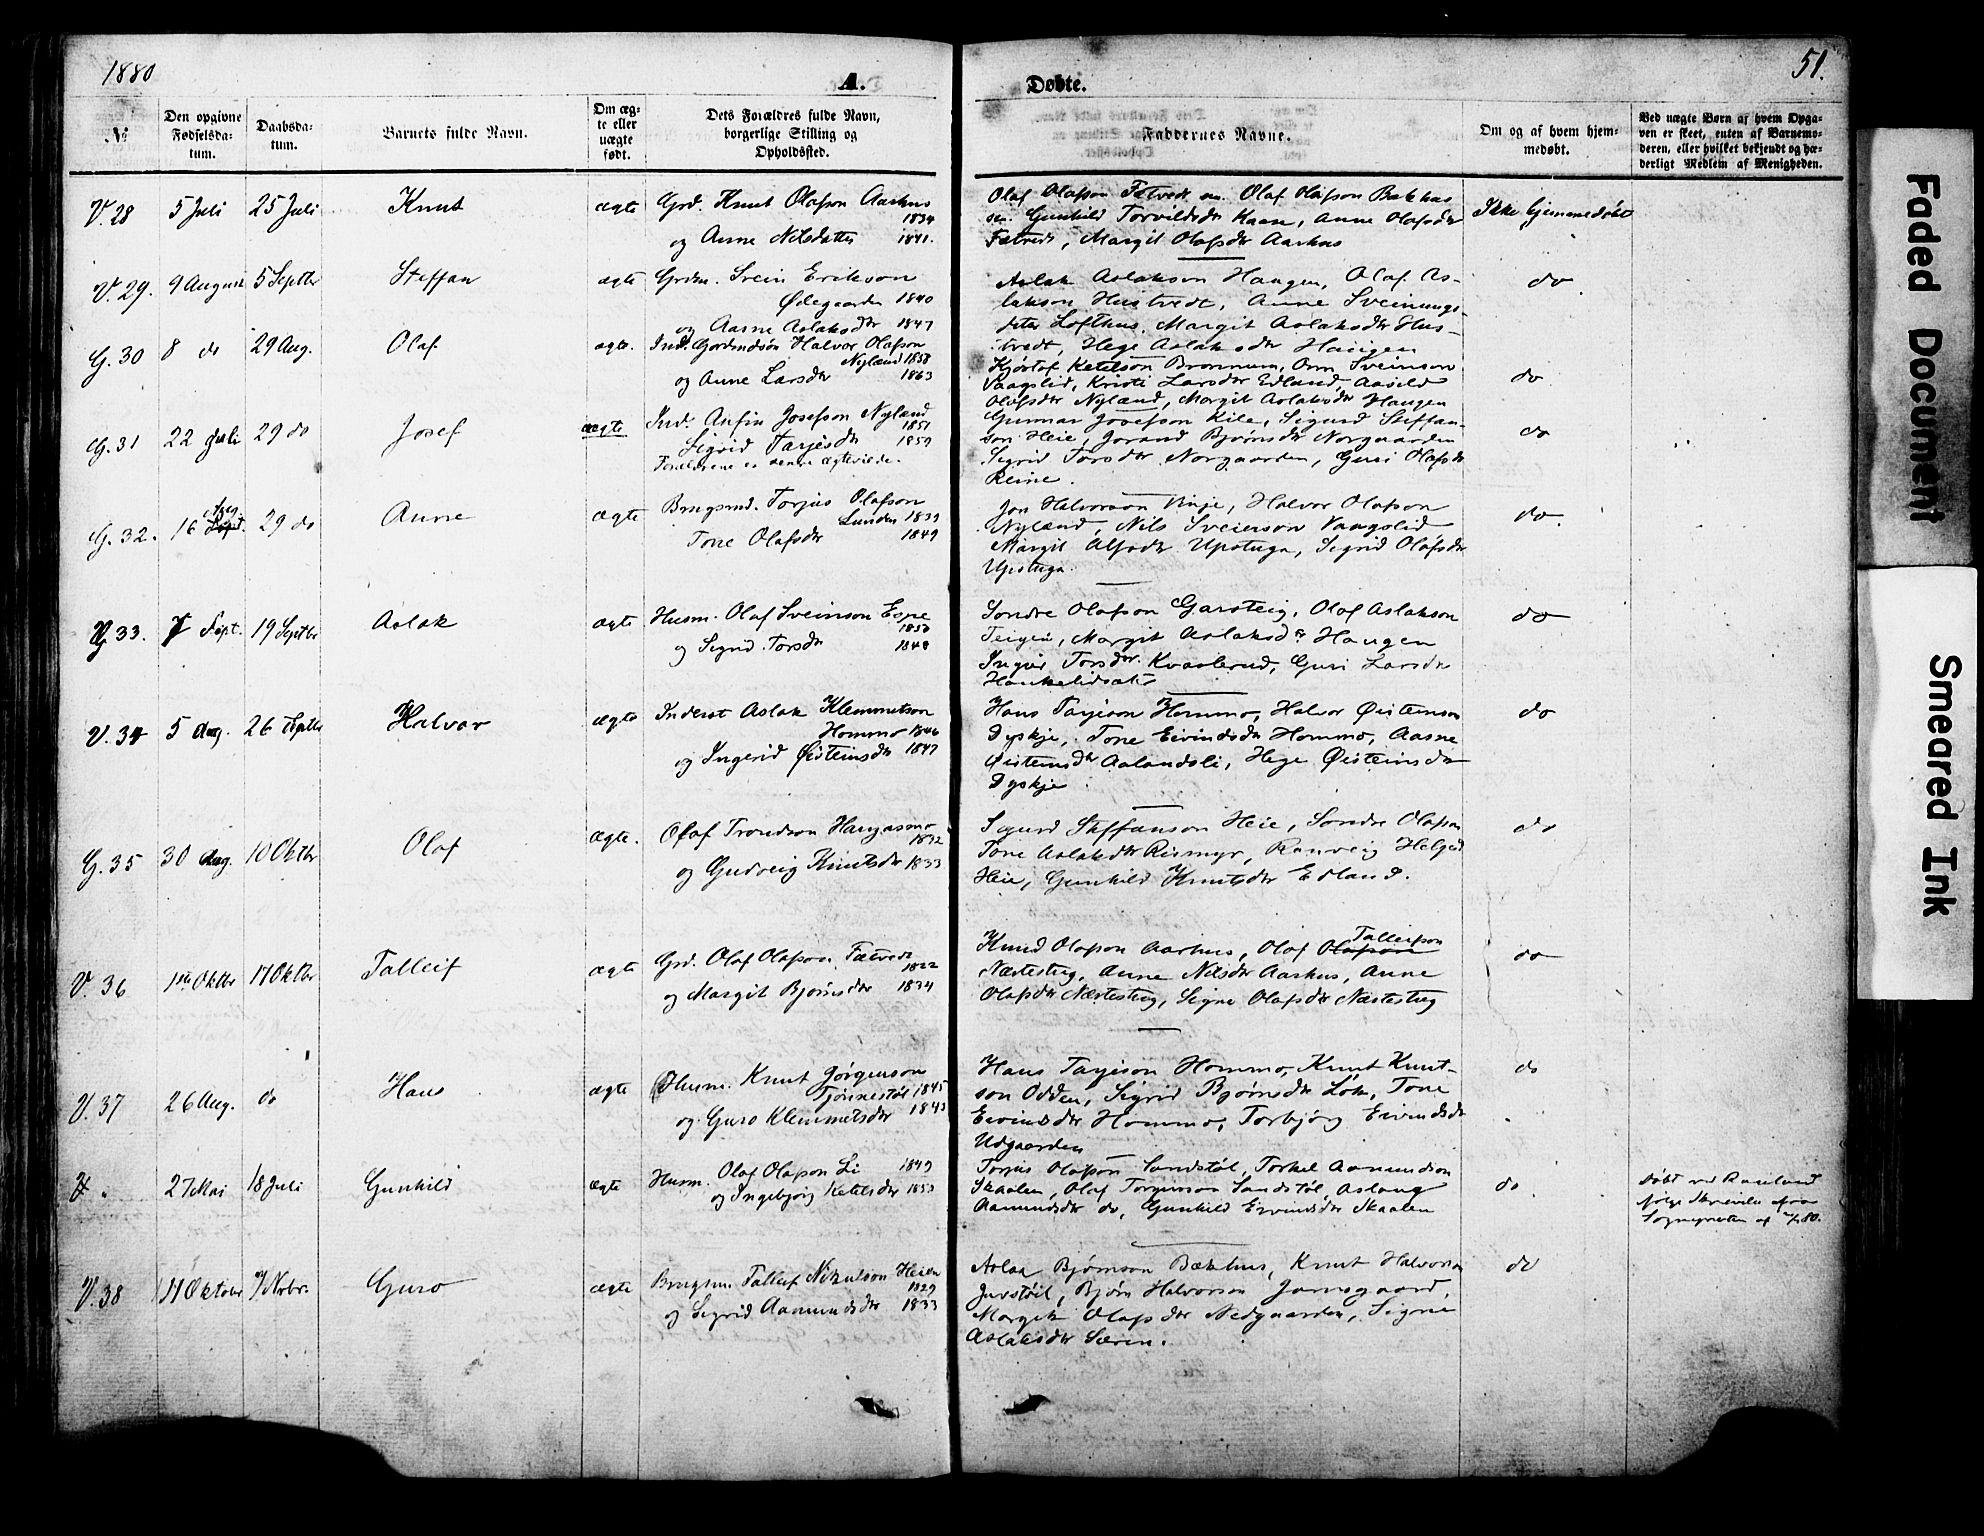 1880
A.
Døbte.
51.
№
Den opgivne Fødselsda-tum.
Daabsda-tum.
Barnets fulde Navn.
Om æg-te eller uægte født.
Dets Forældres fulde Navn, borgerlige Stilling og Opholdssted.
Faddernes Navne.
Om og af hvem hjem-medøbt.
Ved uægte Børn af hvem Opga-ven er skeet, enten af Barnemo-deren, eller hvilket bekjendt og hæ-derligt Medlem af Menigheden.
V. 28 5 Juli 25 Juli Knut ægte Grd. Knut Olafson Aarhus 1834
og Anne Nilsdatter 1841.
Olaf Olafson Fætvedt sn. Olaf Olafson Bakhus
sn. Gunhild Torvildsdr Kaase, Anne Olafsdr
Fætvedt, Margit Olafsdr Aarhus
Ikke hjemmedøbt
V. 29. 9 August 5 Septbr Steffan ægte Grdm. Svein Erikson
Ødegaarden 1840
og Aasne Aslaksdr 1847
Aslak Aslakson Haugen, Olaf As-
lakson Hustvedt, Anne Sveinungs-
datter Lofthus, Margit Aslaksdr Hus-
tvedt, Hege Aslaksdr Haugen
do
G. 30 8 do 29 Aug. Olaf ægte. Ind. Gardmdsøn Halvor Olafson
Nyland 1858
og Anne Larsdr 1863
Kjøstof Ketilson Brommen, Onn Sveinson
Vaagslid, Kristi Larsdr Edland, Aasild
Olafsdr Nyland, Margit Aslaksdr Haugen
do
G. 31 22 Juli 29 do Josef ægte Ind. Anfin Josefson Nyland
1851
Sigrid Tarjesdr 1859
Forældrene er senere ægteviede.
Gunnar Josefson Kile, Sigurd Steffan-
son Heie, Jorand Bjørnsdr Norgaarden
Sigrid Torsdr Norgaarden, Guri Olafsdr
Reine.
do
G. 32. 16 Aug. 29 do Anne ægte Brugsmd. Torjus Olafson
Lunden 1839
Tone Olafsdr 1849
Jon Halvorson Vinje, Halvor Olafson
Nyland, Nils Sveinson Vaagslid
Margit Alfsdr Upstuga, Sigrid Olafsdr
Upstuga.
do.
G 33. 7 Sept. 19 Septbr Aslak ægte Husm. Olaf Sveinson Espe
1850
og Sigrid Torsdr 1848
Sondre Olafson Garsteig, Olaf Aslakson
Teigen, Margit Aslaksdr Haugen
Ingid Torsdr Kvaalerud, Guri Larsdr
Haukelidsæter
do
V. 34 5 Aug. 26 Septbr Halvor ægte Inderst Aslak Klemmetson
Hommo 1846
og Ingerid Øisteinsdr 1847
Hans Tarjeson Hommo, Halvor Øisteinson
Dyskje, Tone Eivindsdr Hommo, Aasne
Øisteinsdr Aalandsli, Hege Øisteinsdr
Dyskje
do
G. 35 30 Aug. 10 Oktbr Olaf ægte. Olaf Trondson Haugasmo
1832
og Gudveig Knutsdr 1833
Sigurd Steffanson Heie, Sondre Olafson
Tone Aslaksdr Rismyr, Ranveig Helgesd
Heie, Gunhild Knutsdr Edland.
do
V. 36 1ste Oktbr 17 Oktbr Talleif ægte Grd. Olaf Olafson Fætvedt
1822
og Margit Bjørnsdr 1834
Knud Olafson Aarhus, Olaf Olafson Talleifson
Næstestug, Anne Nilsdr Aarhus, Anne
Olafsdr Næstestug, Signe Olafsdr Næstestug
do
V. 37 26 Aug. do Hans ægte Husm. Knut Jørgenson
Tjønnestøl 1845
og Guro Klemmetsdr 1843
Hans Tarjeson Hommo, Knut Knut-
son Odden, Sigrid Bjørnsdr Løk, Tone
Eivindsdr Hommo, Torbjørg Eivindsdr
Udgaarden
do
27 Mai 18 Juli Gunhild ægte Husm. Olaf Olafson Li 1849
og Ingebjørg Ketilsdr 1853
Torjus Olafson Sandstøl, Torkel Aanundson
Skaalen, Olaf Torjuson Sandstøl, Aslaug
Aanundsdr do, Gunhild Eivindsdr Skaalen
do.
Døbt ved Rauland
ifølge Skrivelse fra
Sognepresten af
V. 38 11 Oktober 7 Novbr. Guro ægte Brugsm. Talleif Nikulson Heien
1829
og Sigrid Aanundsdr 1833
Aslak Bjørnson Bakhus, Knut Halvorson
Juvstøil, Bjørn Halvorson Jamsgaard,
Margit Olafsdr Nedgaarden, Signe
Aslaksdr Særen.
do
Faded Document
Smeared Ink